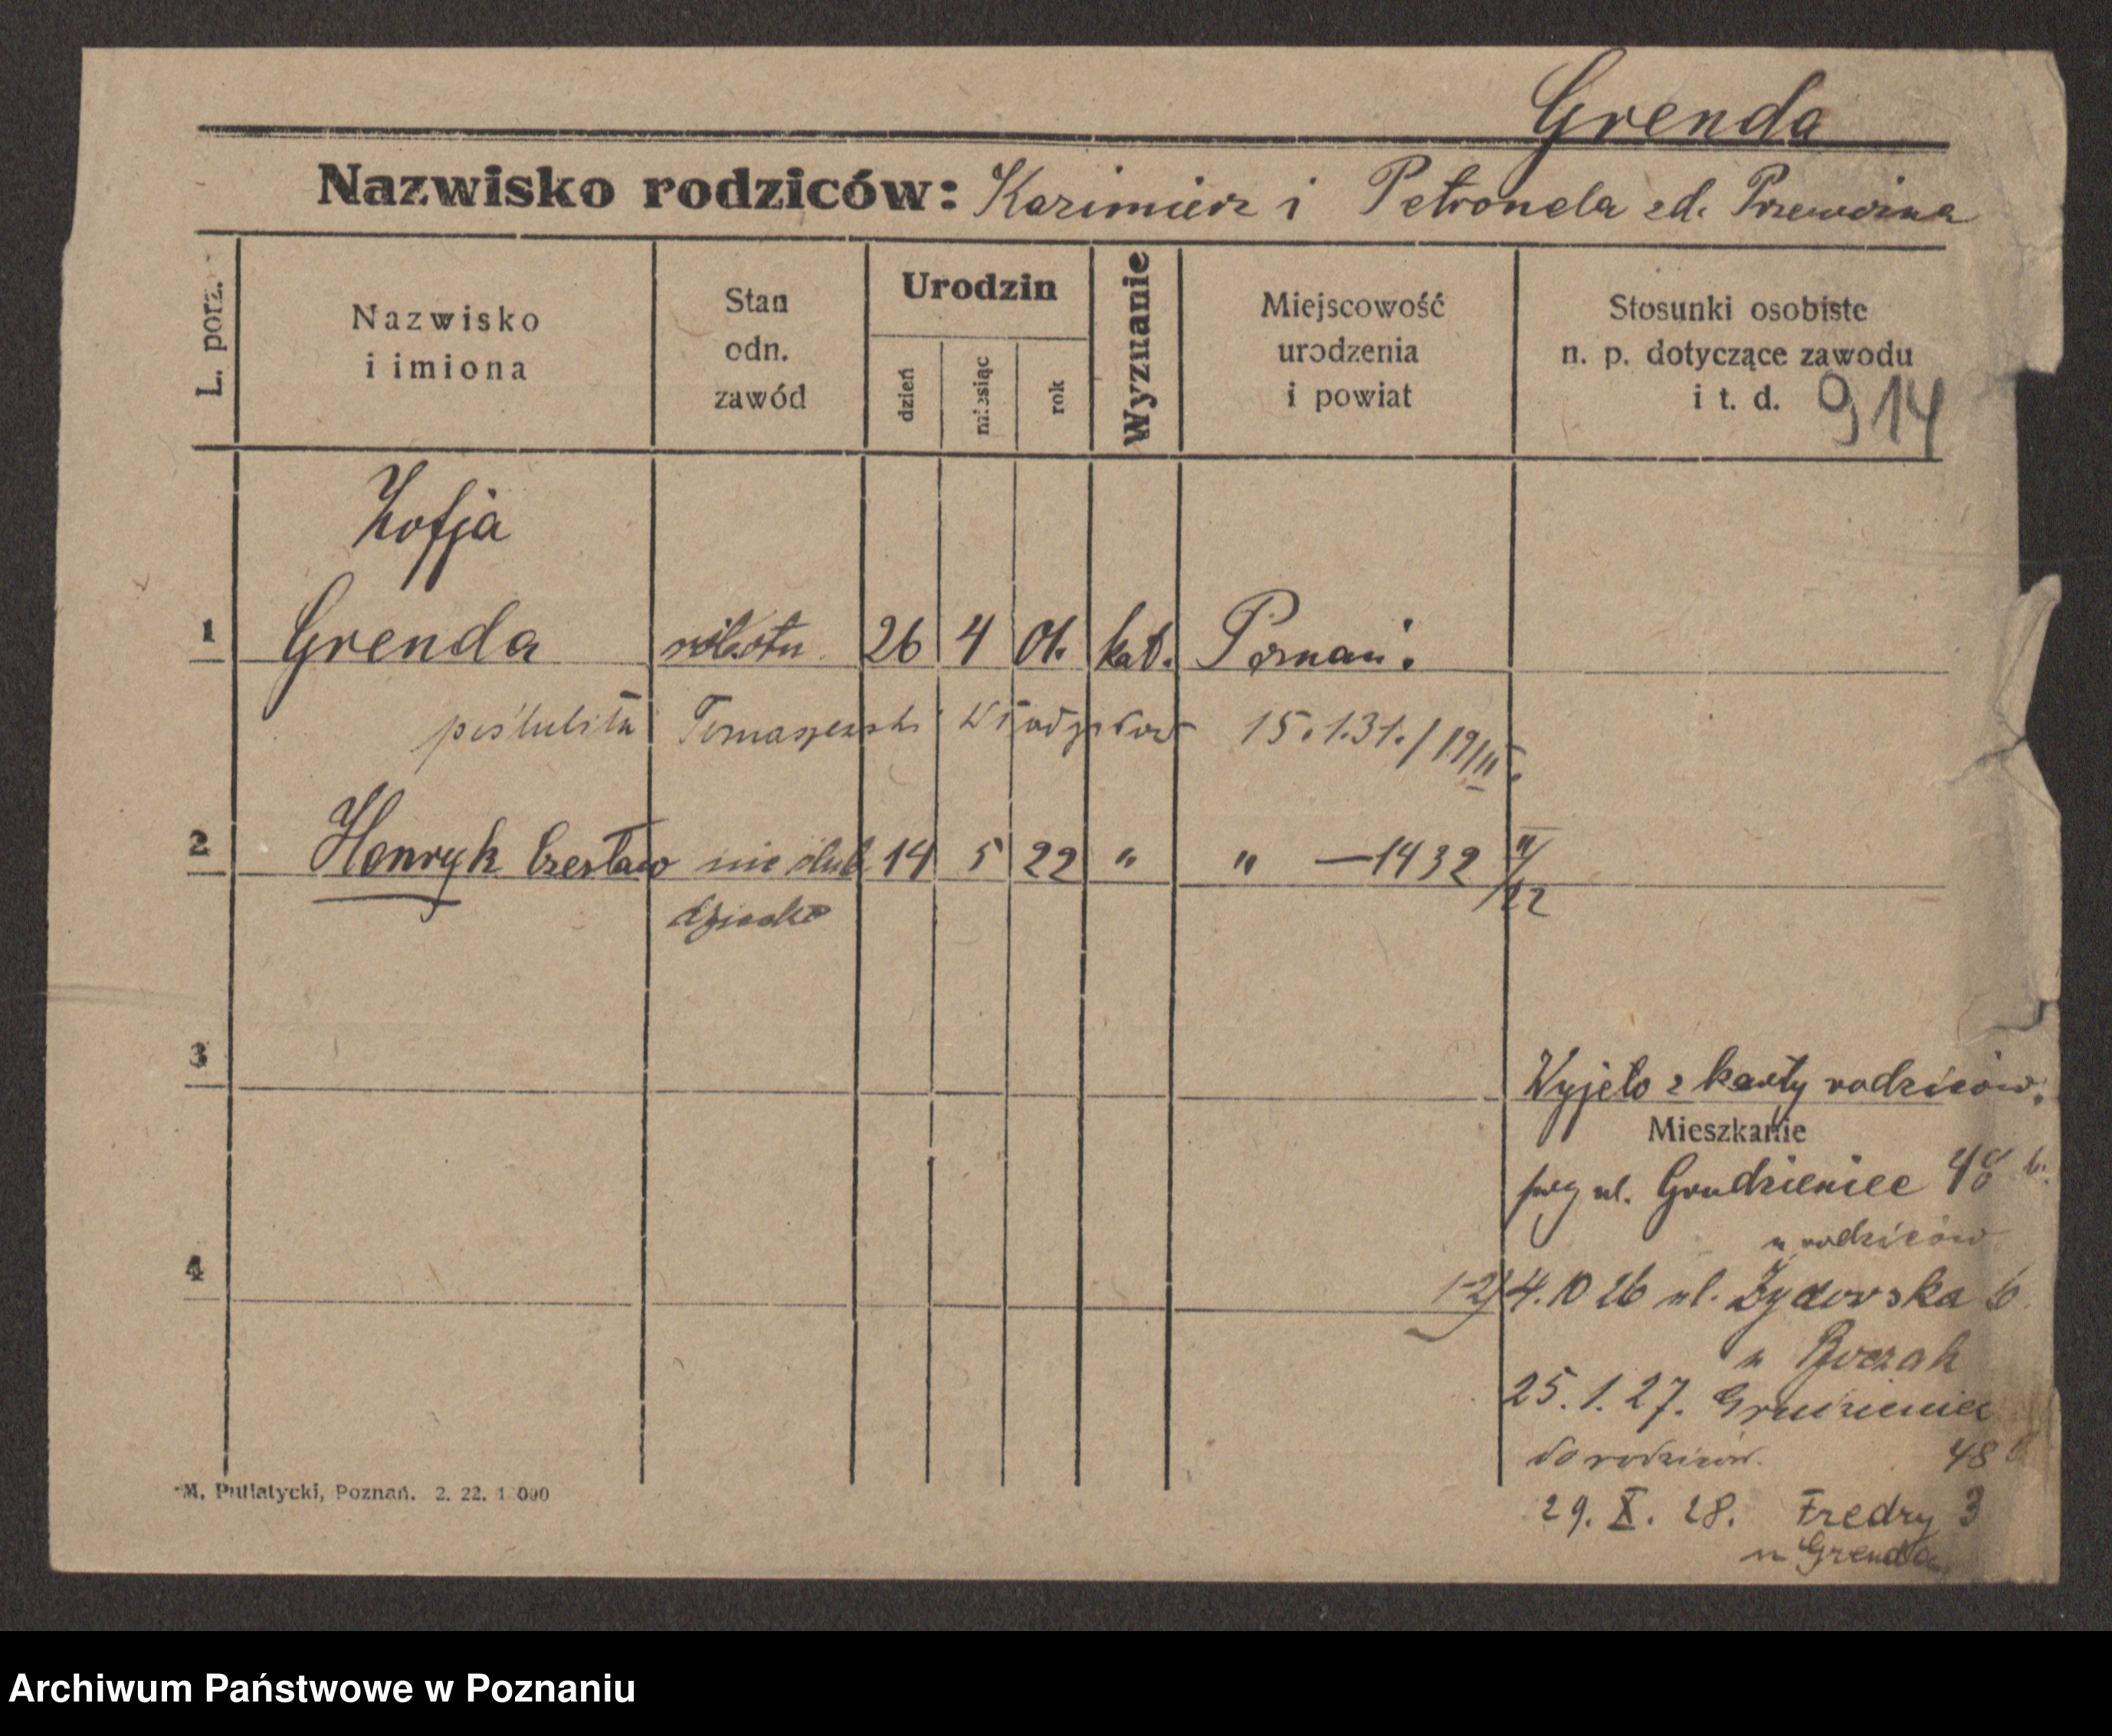 Grenda
Nazwisko rodziców: Kazimierz i Petronela zd. Przewoźna
L. porz.
Nazwisko
i imiona
Stan
odn.
zawód
Urodzin
dzień
miesiąc
rok
Wyzuanie
Miejscowość
urodzenia
i powiat
Stosunki osobiste
n. p. dotyczące zawodu
i t. d. 914
Zofja
1 Grenda robotn. 26 4 01. kat. Poznań.
poślubiła Tomaszewski Władysław 15.1.31./19/III.
2 Henryk Czesław nie ślub 14 5 22 " " —1432 V/22
dziecko
3
Wyjęto z karty rodziców.
Mieszkanie
ul. Grudzieniec 48
u rodziców
4
1-2) 4.10 26 ul. Żydowska 6.
u
25.1.27. Grudzieniec
do rodziców. 48
29. X. 28. Fredry 3
u Grenda
M. Putiatycki, Poznań. 2. 22. 1 000
Archiwum Państwowe w Poznaniu